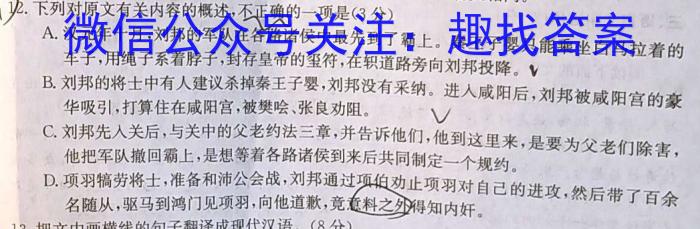 12. 下列对原文有关内容的概述,不正确的一项是(3分)
微信公众号关注:趣找答案
A. 汉元年十月,刘邦的军队在各路诸侯中最先到了霸上。秦王子婴 拉着的
车子,用绳子系着脖子,封存皇帝的玺符,在轵道路旁向刘邦投降。
B. 刘邦的将士中有人建议杀掉秦王子婴,刘邦没有采纳。进入咸阳后,刘邦被咸阳宫的豪
华吸引,打算住在咸阳宫,被樊哙、张良劝阻。
C. 刘邦先入关后,与关中的父老约法三章,并告诉他们,他到这里来,是要为父老们除害,
他把军队撤回霸上,是想等着各路诸侯到来后共同制定一个规约。
D. 项羽犒劳将士,准备和沛公会战,刘邦通过项伯劝止项羽对自己的进攻,然后带了百余
名随从,驱马到鸿门见项羽,向他道歉,竟意料之外得知内奸。
13. 把文中画横线的句子翻译成现代汉语。(8分)